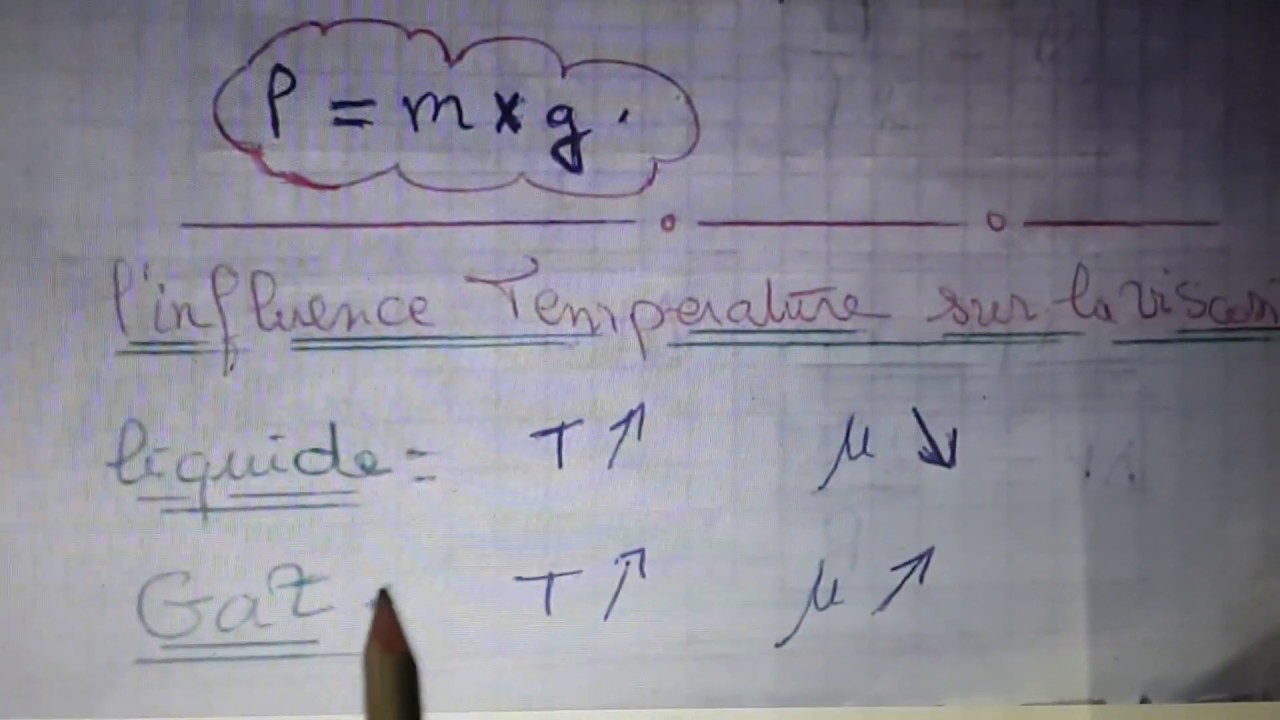 P = m x g.
l'influence Temperature sur la viscosi
liquide: T ↗ μ ↘
Gaz T ↗ μ ↗